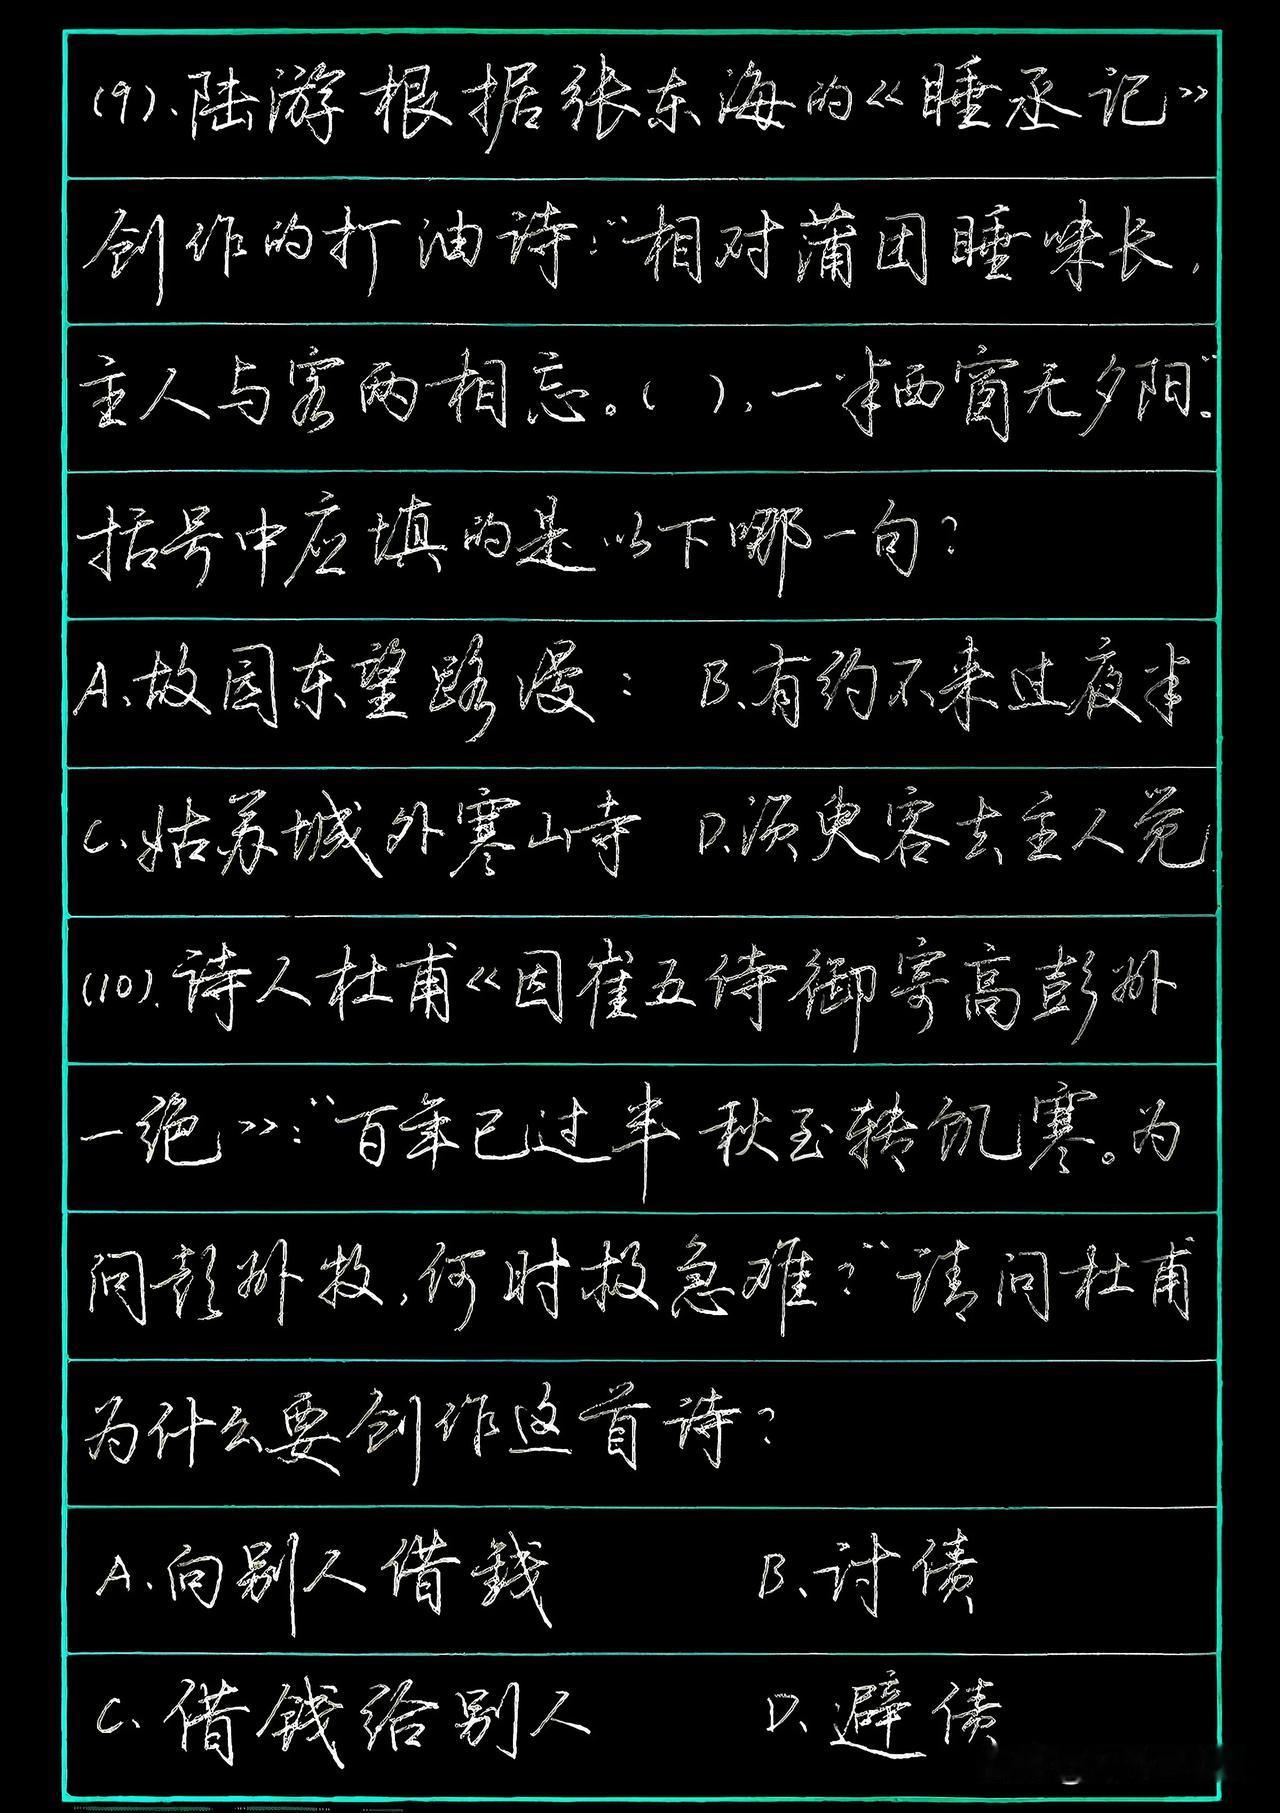 (9).陆游根据张东海的《睡丞记》
创作的打油诗:“相对蒲团睡味长,
主人与客两相忘。( ),一半西窗无夕阳”。
括号中应填的是以下哪一句?
A、故园东望路漫: B、有约不来过夜半
C、姑苏城外寒山寺 D、须臾客去主人觉
(10).诗人杜甫《因崔五侍御寄高彭州
一绝》:“百年已过半 秋至转饥寒。为
问彭州牧,何时救急难?”请问杜甫
为什么要创作这首诗?
A、向别人借钱 B、讨债
C、借钱给别人 D、避债